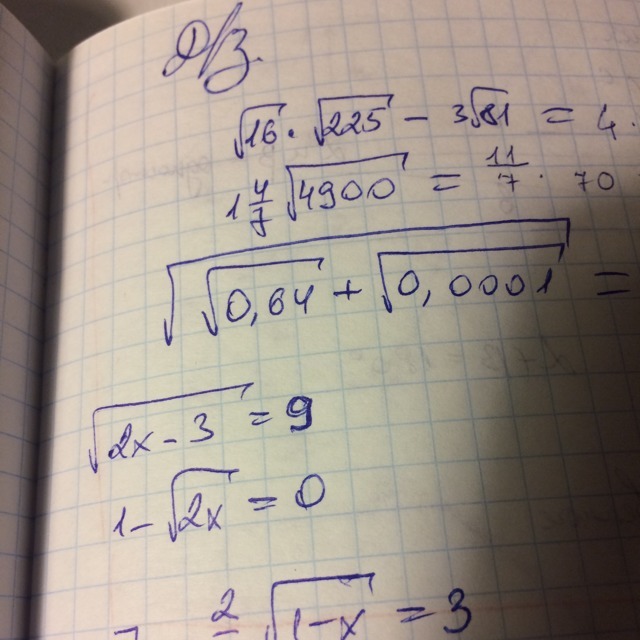 Д/З.
√16 · √225 − 3√81 = 4 ·
1 4/7 √4900 = 11/7 · 70
√(√0,64 + √0,0001) =
√(2x − 3) = 9
1 − √(2x) = 0
2 √(1−x) = 3